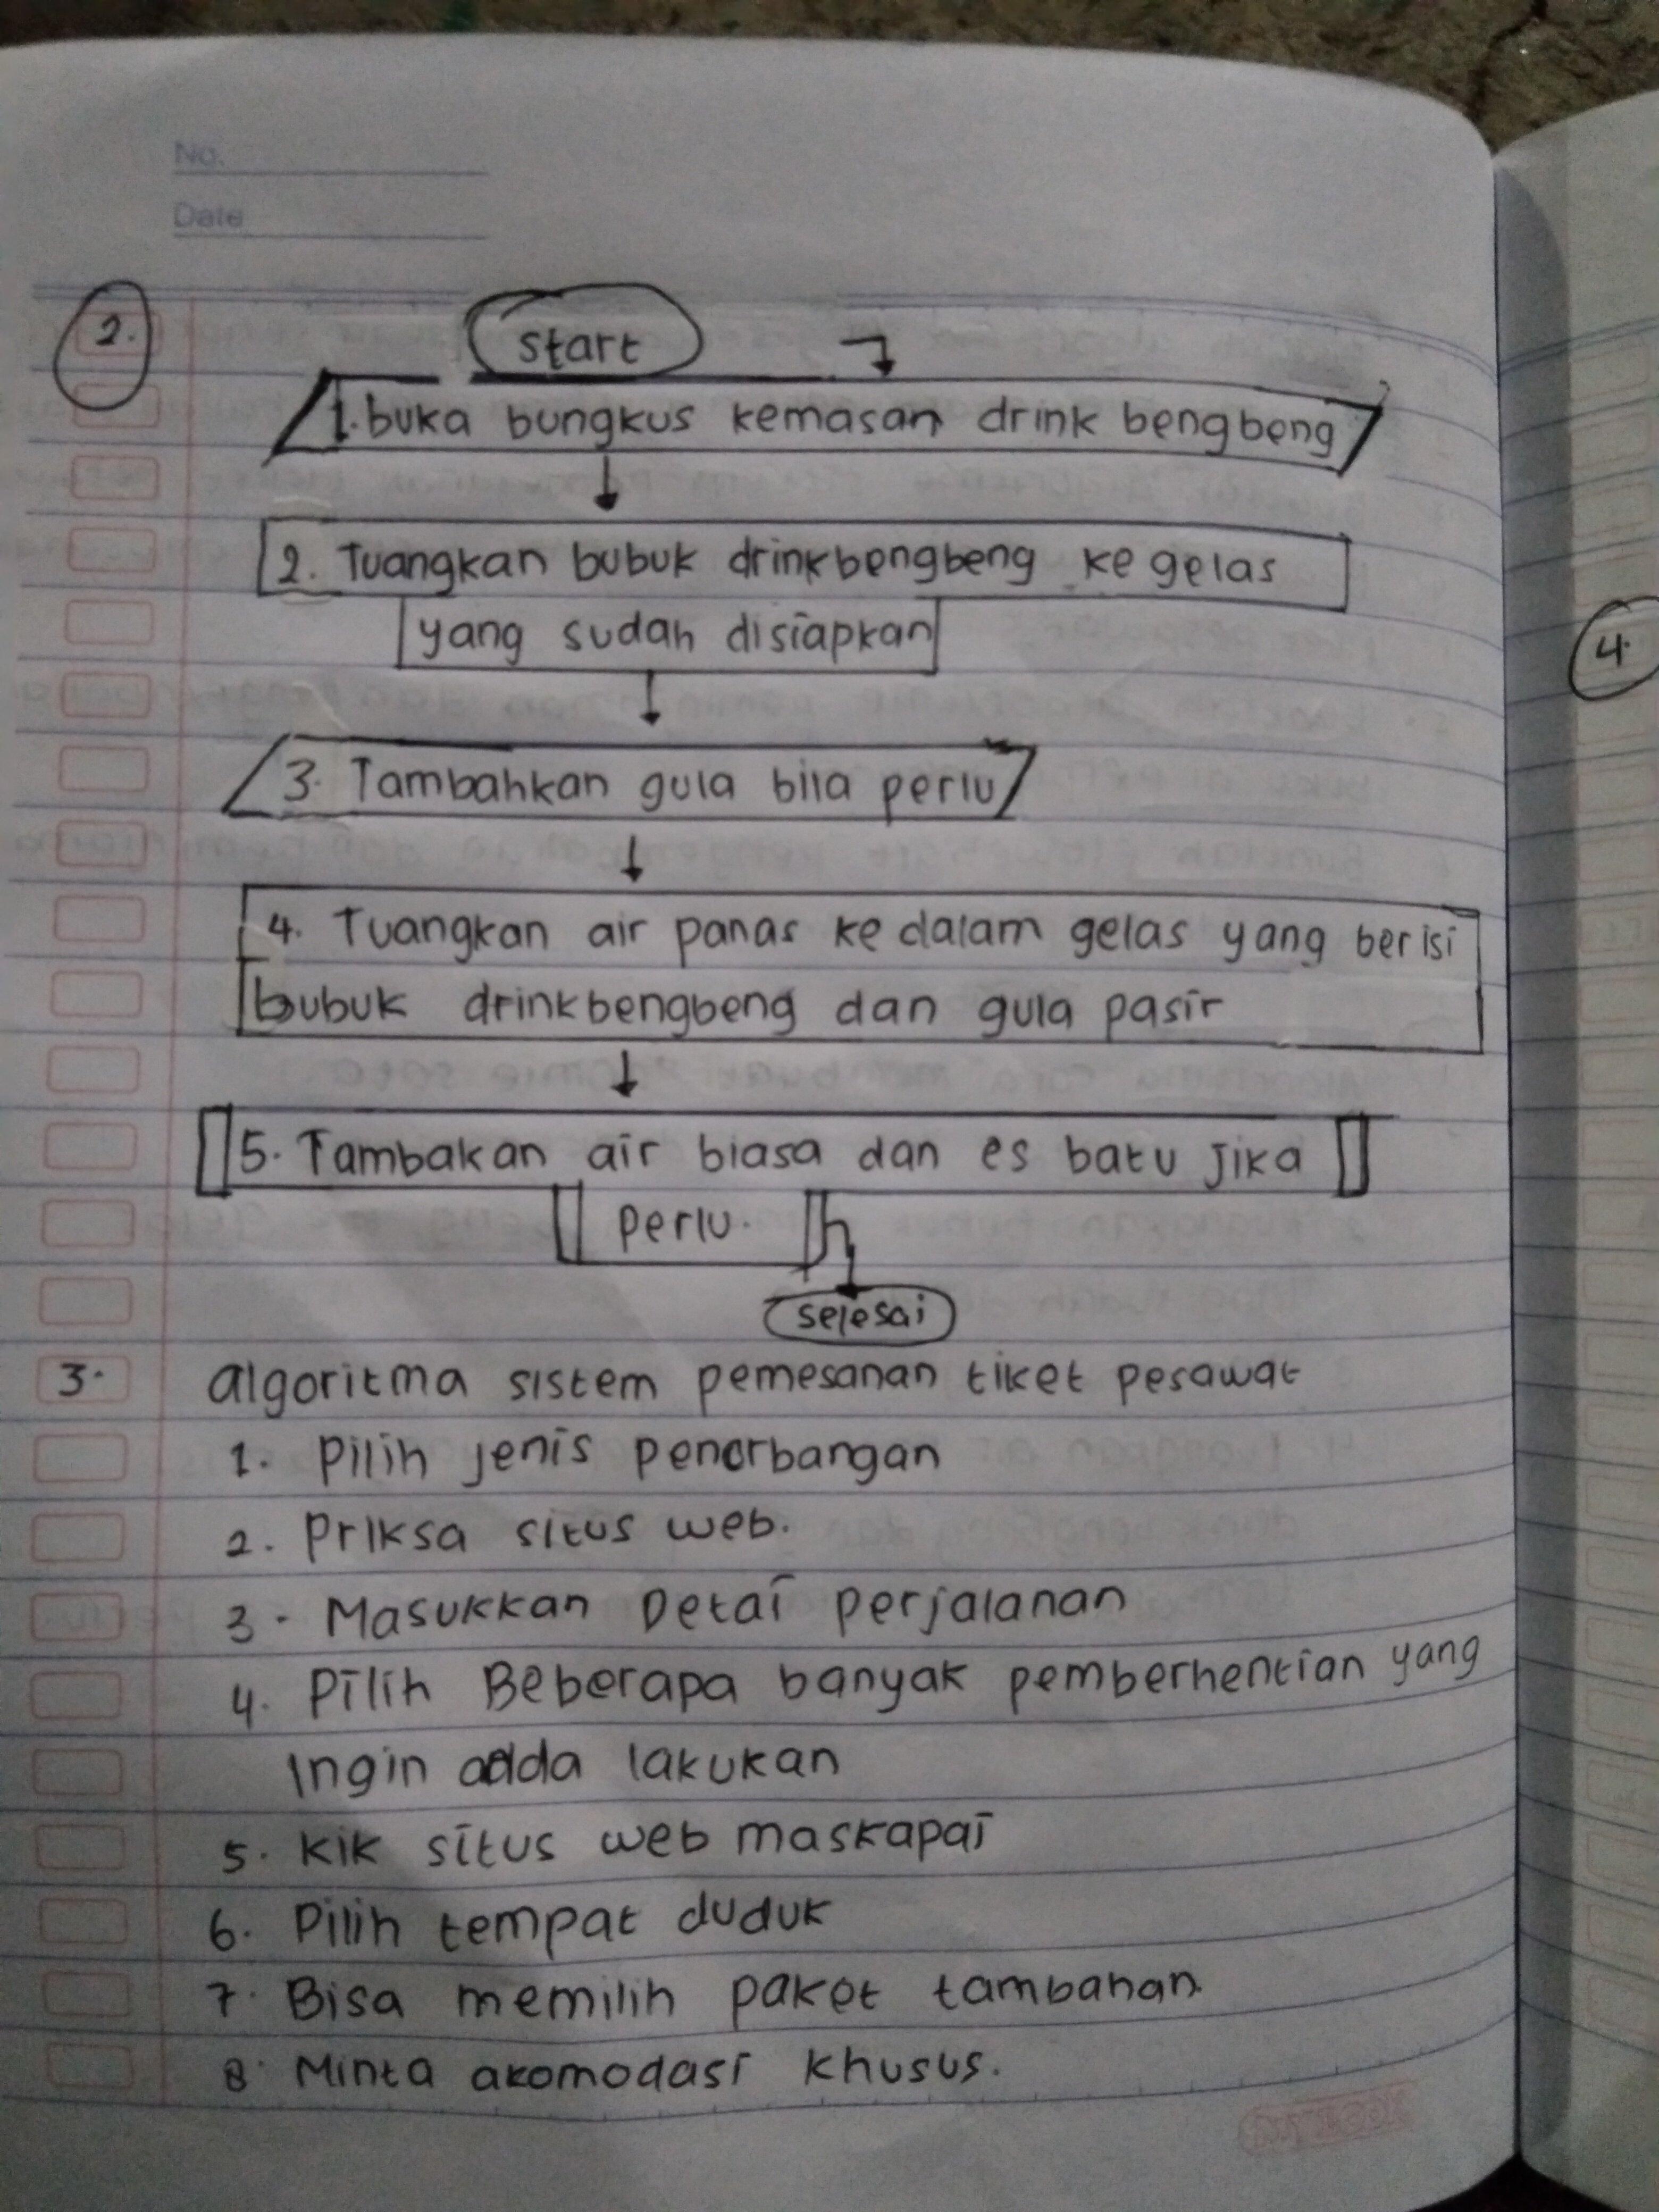 No.
Date
2.
start
1. buka bungkus kemasan drink bengbeng
2. Tuangkan bubuk drinkbengbeng ke gelas
yang sudah disiapkan
4.
3. Tambahkan gula bila perlu
4. Tuangkan air panas ke dalam gelas yang berisi
bubuk drinkbengbeng dan gula pasir
5. Tambakan air biasa dan es batu Jika
perlu.
selesai
3. algoritma sistem pemesanan tiket pesawat
1. Pilih jenis penerbangan
2. Priksa situs web.
3. Masukkan Detai perjalanan
4. Pilih Beberapa banyak pemberhentian yang
Ingin adda lakukan
5. Kik situs web maskapai
6. Pilih tempat duduk
7. Bisa memilih paket tambahan.
8. Minta akomodasi khusus.